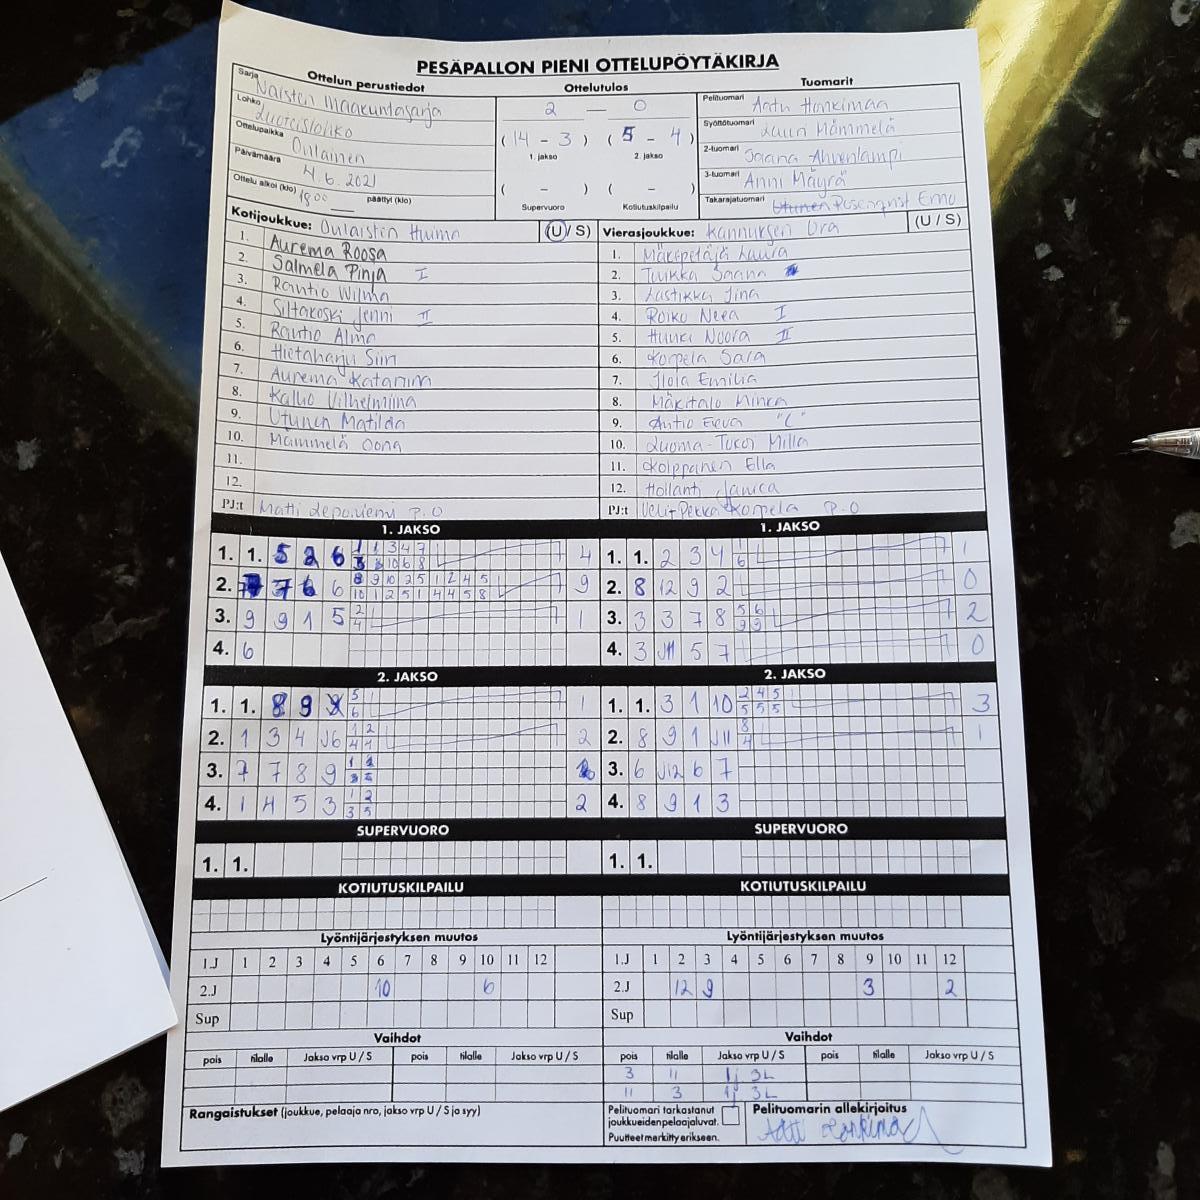 PESÄPALLON PIENI OTTELUPÖYTÄKIRJA
Ottelun perustiedot Ottelutulos Tuomarit
Sarja Naisten Maakuntasarja
Lohko Luoteislohko
Ottelupaikka Oulainen
Päivämäärä 4.6.2021
Ottelu alkoi (klo) 18 00 päättyi (klo)
2 — 0
( 14 - 3 ) ( 5 - 4 )
1. jakso 2. jakso
( - ) ( - )
Supervuoro Kotiutuskilpailu
Pelituomari Hankimaa
Syöttötuomari Lauri Mämmelä
2-tuomari Jaana Ahvenlampi
3-tuomari Anni Mäyrä
Takarajatuomari Rosenqvist Emo
Kotijoukkue: Oulaisten Huima (U / S)
1. Aurema Roosa
2. Salmela Pinja I
3. Rantio Wilma
4. Siltakoski Jenni II
5. Rautio Alma
6. Hietaharju Siiri
7. Aurema Katariina
8. Kallio Vilhelmiina
9. Utunen Matilda
10. Mämmelä Oona
11.
12.
PJ:t Matti P.O
Vierasjoukkue: Kannuksen Ura (U / S)
1. Mäkipeläjä Laura
2. Tuikka Jaana
3. Lastikka Jina
4. Roiko Neea I
5. Huuki Noora II
6. Korpela Sara
7. Ilola Emilia
8. Mäkitalo Minea
9. Antio Eeva "C"
10. Luoma-Tokoi Milla
11. Kolppanen Ella
12. Hollanti Janica
PJ:t Veli-Pekka Korpela P-O
1. JAKSO 1. JAKSO
1. 1. 5 2 6 4
2. 7 6 6 9
8 9 10 2 5 1 2 4 5
10 1 2 5 1 4 4 5 8
3. 9 9 1 5 2 4 1
4. 6
1. 1. 2 3 4 1 6 1
2. 8 12 9 2 0
3. 3 3 7 8 5 6 9 9 2
4. 3 J11 5 7 0
2. JAKSO 2. JAKSO
1. 1. 8 9 5 6 1
2. 1 3 4 J6 1 2 4 4 2
3. 7 7 8 9
4. 1 4 5 3 1 2 3 5 2
1. 1. 3 1 10 2 4 5 5 5 5 3
2. 8 9 1 J11 8 4 1
3. 6 J12 6 7
4. 8 9 1 3
SUPERVUORO SUPERVUORO
1. 1. 1. 1.
KOTIUTUSKILPAILU KOTIUTUSKILPAILU
Lyöntijärjestyksen muutos Lyöntijärjestyksen muutos
1.J 1 2 3 4 5 6 7 8 9 10 11 12
2.J 10 6
Sup
1.J 1 2 3 4 5 6 7 8 9 10 11 12
2.J 12 9 3 2
Sup
Vaihdot Vaihdot
pois tilalle Jakso vrp U / S pois tilalle Jakso vrp U / S
pois tilalle Jakso vrp U / S pois tilalle Jakso vrp U / S
3 11 1j 3L
11 3 1j 3L
Rangaistukset (joukkue, pelaaja nro, jakso vrp U / S ja syy)
Pelituomari tarkastanut
joukkueiden pelaajaluvat.
Puutteet merkitty erikseen.
Pelituomarin allekirjoitus